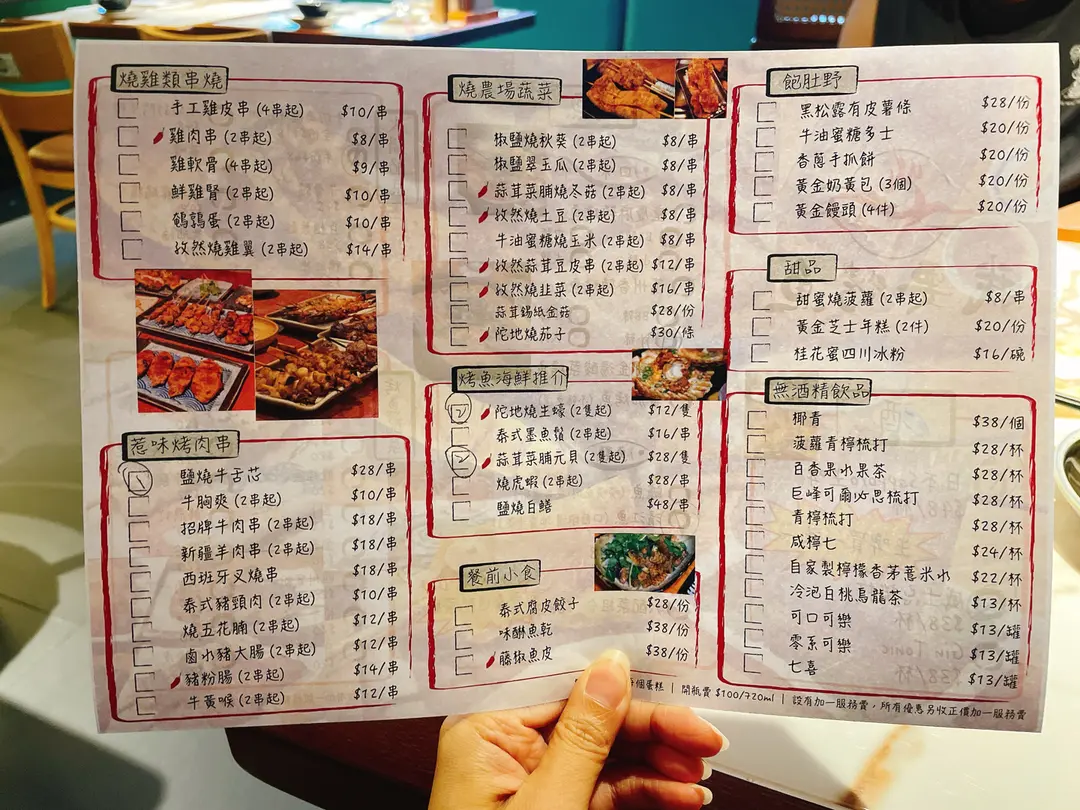 燒雞類串燒
手工雞皮串 (4串起) $10/串
雞肉串 (2串起) $8/串
雞軟骨 (4串起) $9/串
鮮雞腎 (2串起) $10/串
鵪鶉蛋 (2串起) $10/串
孜然燒雞翼 (2串起) $14/串
惹味烤肉串
鹽燒牛舌芯 $28/串
牛胸爽 (2串起) $10/串
招牌牛肉串 (2串起) $18/串
新疆羊肉串 (2串起) $18/串
西班牙叉燒串 $18/串
泰式豬頸肉 (2串起) $10/串
燒五花腩 (2串起) $12/串
鹵水豬大腸 (2串起) $12/串
豬粉腸 (2串起) $14/串
牛黃喉 (2串起) $12/串
燒農場蔬菜
椒鹽燒秋葵 (2串起) $8/串
椒鹽翠玉瓜 (2串起) $8/串
蒜茸菜脯燒冬菇 (2串起) $8/串
孜然燒土豆 (2串起) $8/串
牛油蜜糖燒玉米 (2串起) $8/串
孜然蒜茸豆皮串 (2串起) $12/串
孜然燒韭菜 (2串起) $16/串
蒜茸錫紙金菇 $28/份
陀地燒茄子 $30/條
烤魚海鮮推介
陀地燒生蠔 (2隻起) $12/隻
泰式墨魚鬚 (2串起) $16/串
蒜茸菜脯元貝 (2隻起) $28/隻
燒虎蝦 (2串起) $28/串
鹽燒白鱔 $48/串
餐前小食
泰式腐皮餃子 $28/份
味醂魚乾 $38/份
藤椒魚皮 $38/份
飽肚野
黑松露有皮薯條 $28/份
牛油蜜糖多士 $20/份
香蔥手抓餅 $20/份
黃金奶黃包 (3個) $20/份
黃金饅頭 (4件) $20/份
甜品
甜蜜燒菠蘿 (2串起) $8/串
黃金芝士年糕 (2件) $20/份
桂花蜜四川冰粉 $16/碗
無酒精飲品
椰青 $38/個
菠蘿青檸梳打 $28/杯
百香果水果茶 $28/杯
巨峰可爾必思梳打 $28/杯
青檸梳打 $28/杯
咸檸七 $24/杯
自家製檸檬香茅薏米水 $22/杯
冷泡白桃烏龍茶 $13/杯
可口可樂 $13/罐
零系可樂 $13/罐
七喜 $13/罐
個蛋糕 | 開瓶費 $100/720ml | 設有加一服務費，所有優惠另收正價加一服務費